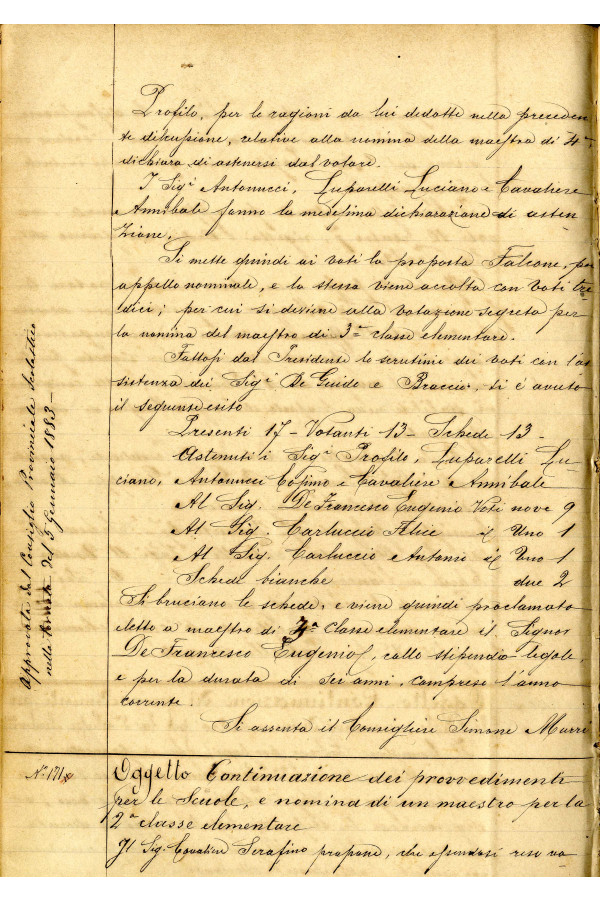 Profilo, per le ragioni da lui dedotte nella preceden-
te discussione, relative alla nomina della maestra di 4ª
dichiara di astenersi dal votare.
I Sigⁱ Antonucci, Luparelli Luciano e Cavaliere
Annibale fanno la medesima dichiarazione di asten-
zione.
Si mette quindi ai voti la proposta Falcone, per
appello nominale, e la stessa viene accolta con voti tre-
dici; per cui si deviene alla votazione segreta per
la nomina del maestro di 3ª classe elementare.
Fattosi dal Presidente lo scrutinio dei voti con l'as-
sistenza dei Sigⁱ De Guido e Braccio, si è avuto
il seguente esito
Presenti 17 - Votanti 13 - Schede 13 -
Astenuti i Sigⁱ Profilo, Luparelli Lu-
ciano, Antonucci Cosimo e Cavaliere Annibale
Al Sig. De Francesco Eugenio Voti nove 9
Al Sig. Carluccio Felice id Uno 1
Al Sig. Carluccio Antonio id Uno 1
Schede bianche due 2
Si bruciano le schede, e viene quindi proclamato
eletto a maestro di 3ª classe elementare il Signor
De Francesco Eugenio, collo stipendio legale,
e per la durata di sei anni, compreso l'anno
corrente.
Si assenta il Consigliere Simone Murri
Approvata dal Consiglio Provinciale Scolastico
nella tornata del 5 Gennaio 1883 -
Nº 171
Oggetto Continuazione dei provvedimenti
per le Scuole, e nomina di un maestro per la
2ª classe elementare
Il Sig. Cavaliere Serafino propone, che essendosi reso va-